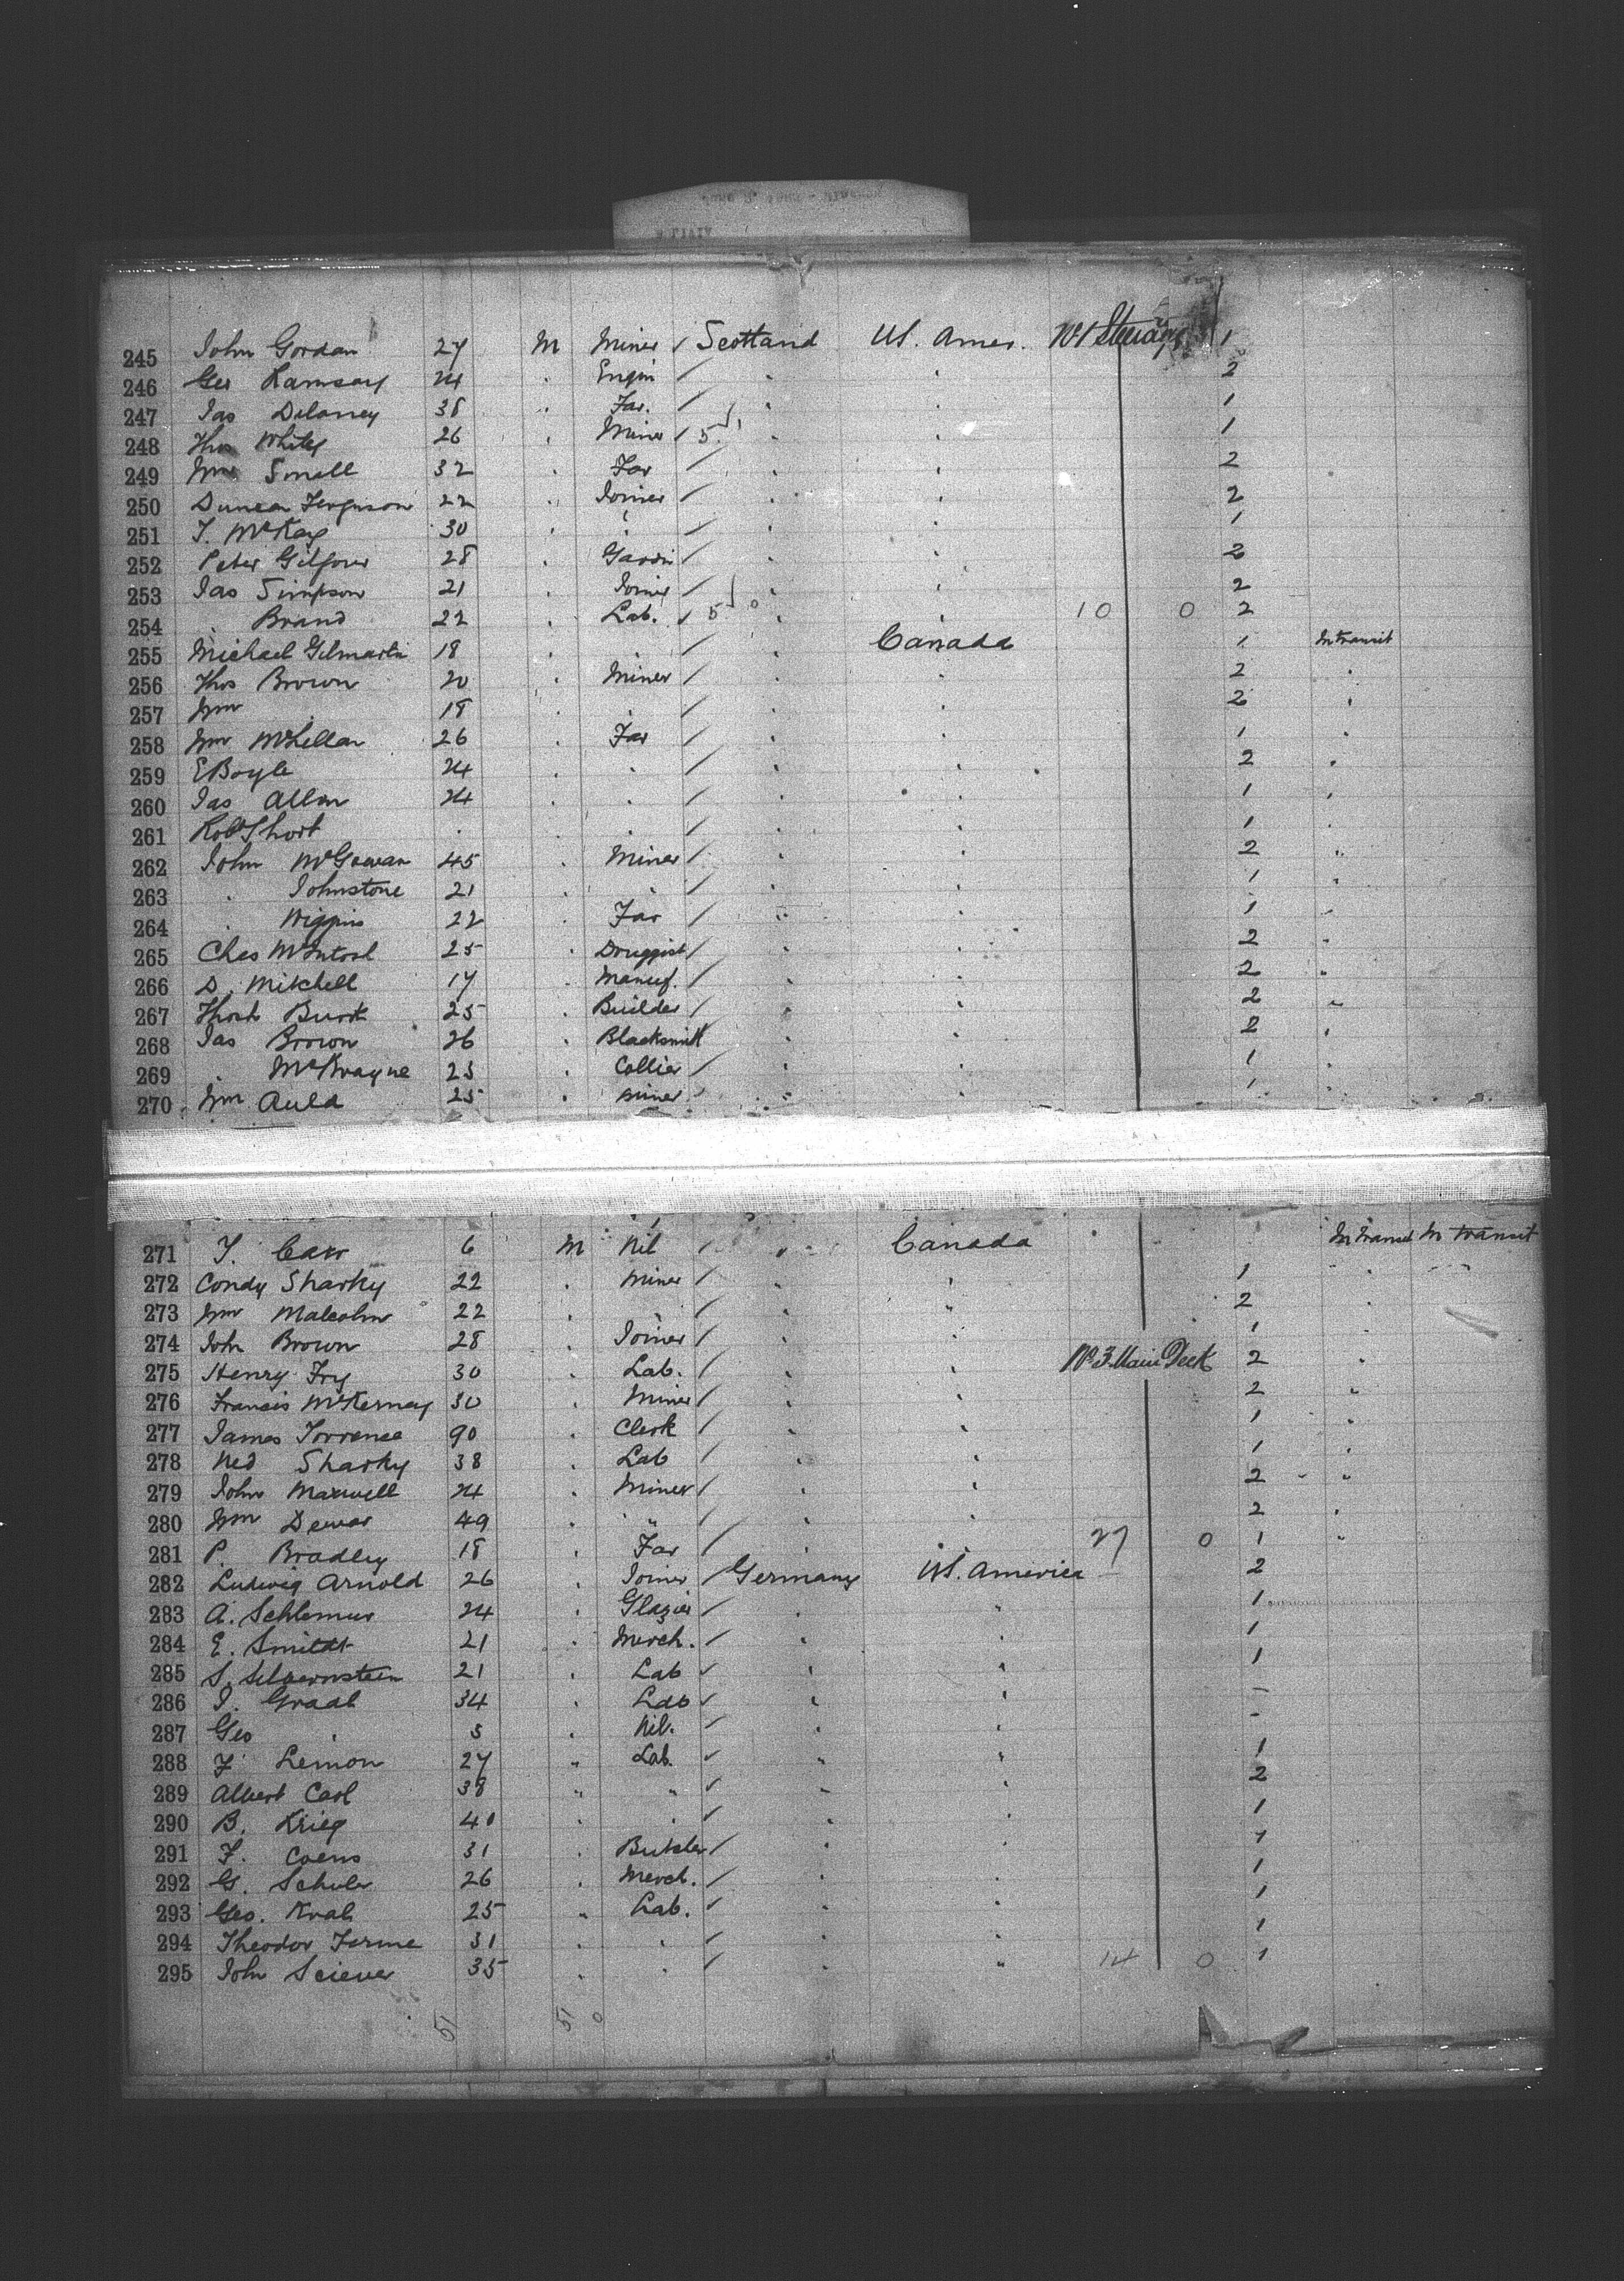 245 John Gordan 27 M Miner / Scotland US. Amer. No 1 Steerage 1
246 Geo Ramsay 24 " Engin / " " 2
247 Jas Delaney 38 " Far. / " " 1
248 Thos White 26 " Miner / 5 " " 1
249 Wm Small 32 " Far / " " 2
250 Duncan Ferguson 22 " Joiner / " " 2
251 T. McKay 30 " " / " " 1
252 Peter Gilfour 28 " Gardn / " " 2
253 Jas Simpson 21 " Joiner / " " 2
254 " Brand 22 " Lab. / 5 " " 10 0 2
255 Michael Gilmartin 18 " " / " Canada 1 In transit
256 Thos Brown 20 " Miner / " " 2 "
257 Wm " 18 " " / " " 2 "
258 Wm McLellan 26 " Far / " " 1 "
259 E Boyle 24 " " / " " 2 "
260 Jas Allan 24 " " / " " 1 "
261 Robt Short " " " / " " 1 "
262 John McGowan 45 " Miner / " " 2 "
263 " Johnstone 21 " " / " " 1 "
264 " Wiggins 22 " Far / " " 1 "
265 Chas McIntosh 25 " Druggist / " " 2 "
266 D. Mitchell 17 " Manuf. / " " 2 "
267 Thos Burk 25 " Builder / " " 2 "
268 Jas Brown 26 " Blacksmith " " 2 "
269 " McKrayne 23 " Collier / " " 1 "
270 Wm Auld 25 " Miner " " 1 "
271 T. Carr 6 M Nil / " Canada " In transit In transit
272 Condy Sharky 22 " Miner / " " 1 "
273 Wm Malcolm 22 " " / " " 2 "
274 John Brown 28 " Joiner / " " 1 "
275 Henry Fry 30 " Lab. / " " No 3 Main Deck 2 "
276 Francis McKernay 30 " Miner / " " 2 "
277 James Torrence 90 " Clerk / " " 1 "
278 Ned Sharky 38 " Lab / " " 1 "
279 John Maxwell 24 " Miner / " " 2 "
280 Wm Dewar 49 " " / " " 2 "
281 P. Bradley 18 " Far / " " 27 0 1 "
282 Ludwig Arnold 26 " Joiner / Germany US. America 2
283 A. Schlemur 24 " Glazier / " " 1
284 E. Smildt 21 " Merch. / " " 1
285 S. Silbernstein 21 " Lab / " " 1
286 J. Graab 34 " Lab / " " -
287 Geo " 3 " Nil. / " " -
288 F. Lemon 27 " Lab. / " " 1
289 Albert Carl 38 " " / " " 2
290 B. Krieg 40 " " / " " 1
291 F. Coens 31 " Butcher / " " 1
292 G. Schuler 26 " Merch. / " " 1
293 Geo. Krab 25 " Lab. / " " 1
294 Theodor Ferme 31 " " / " " 1
295 John Sciever 35 " " / " " 14 0 1
51 51 0